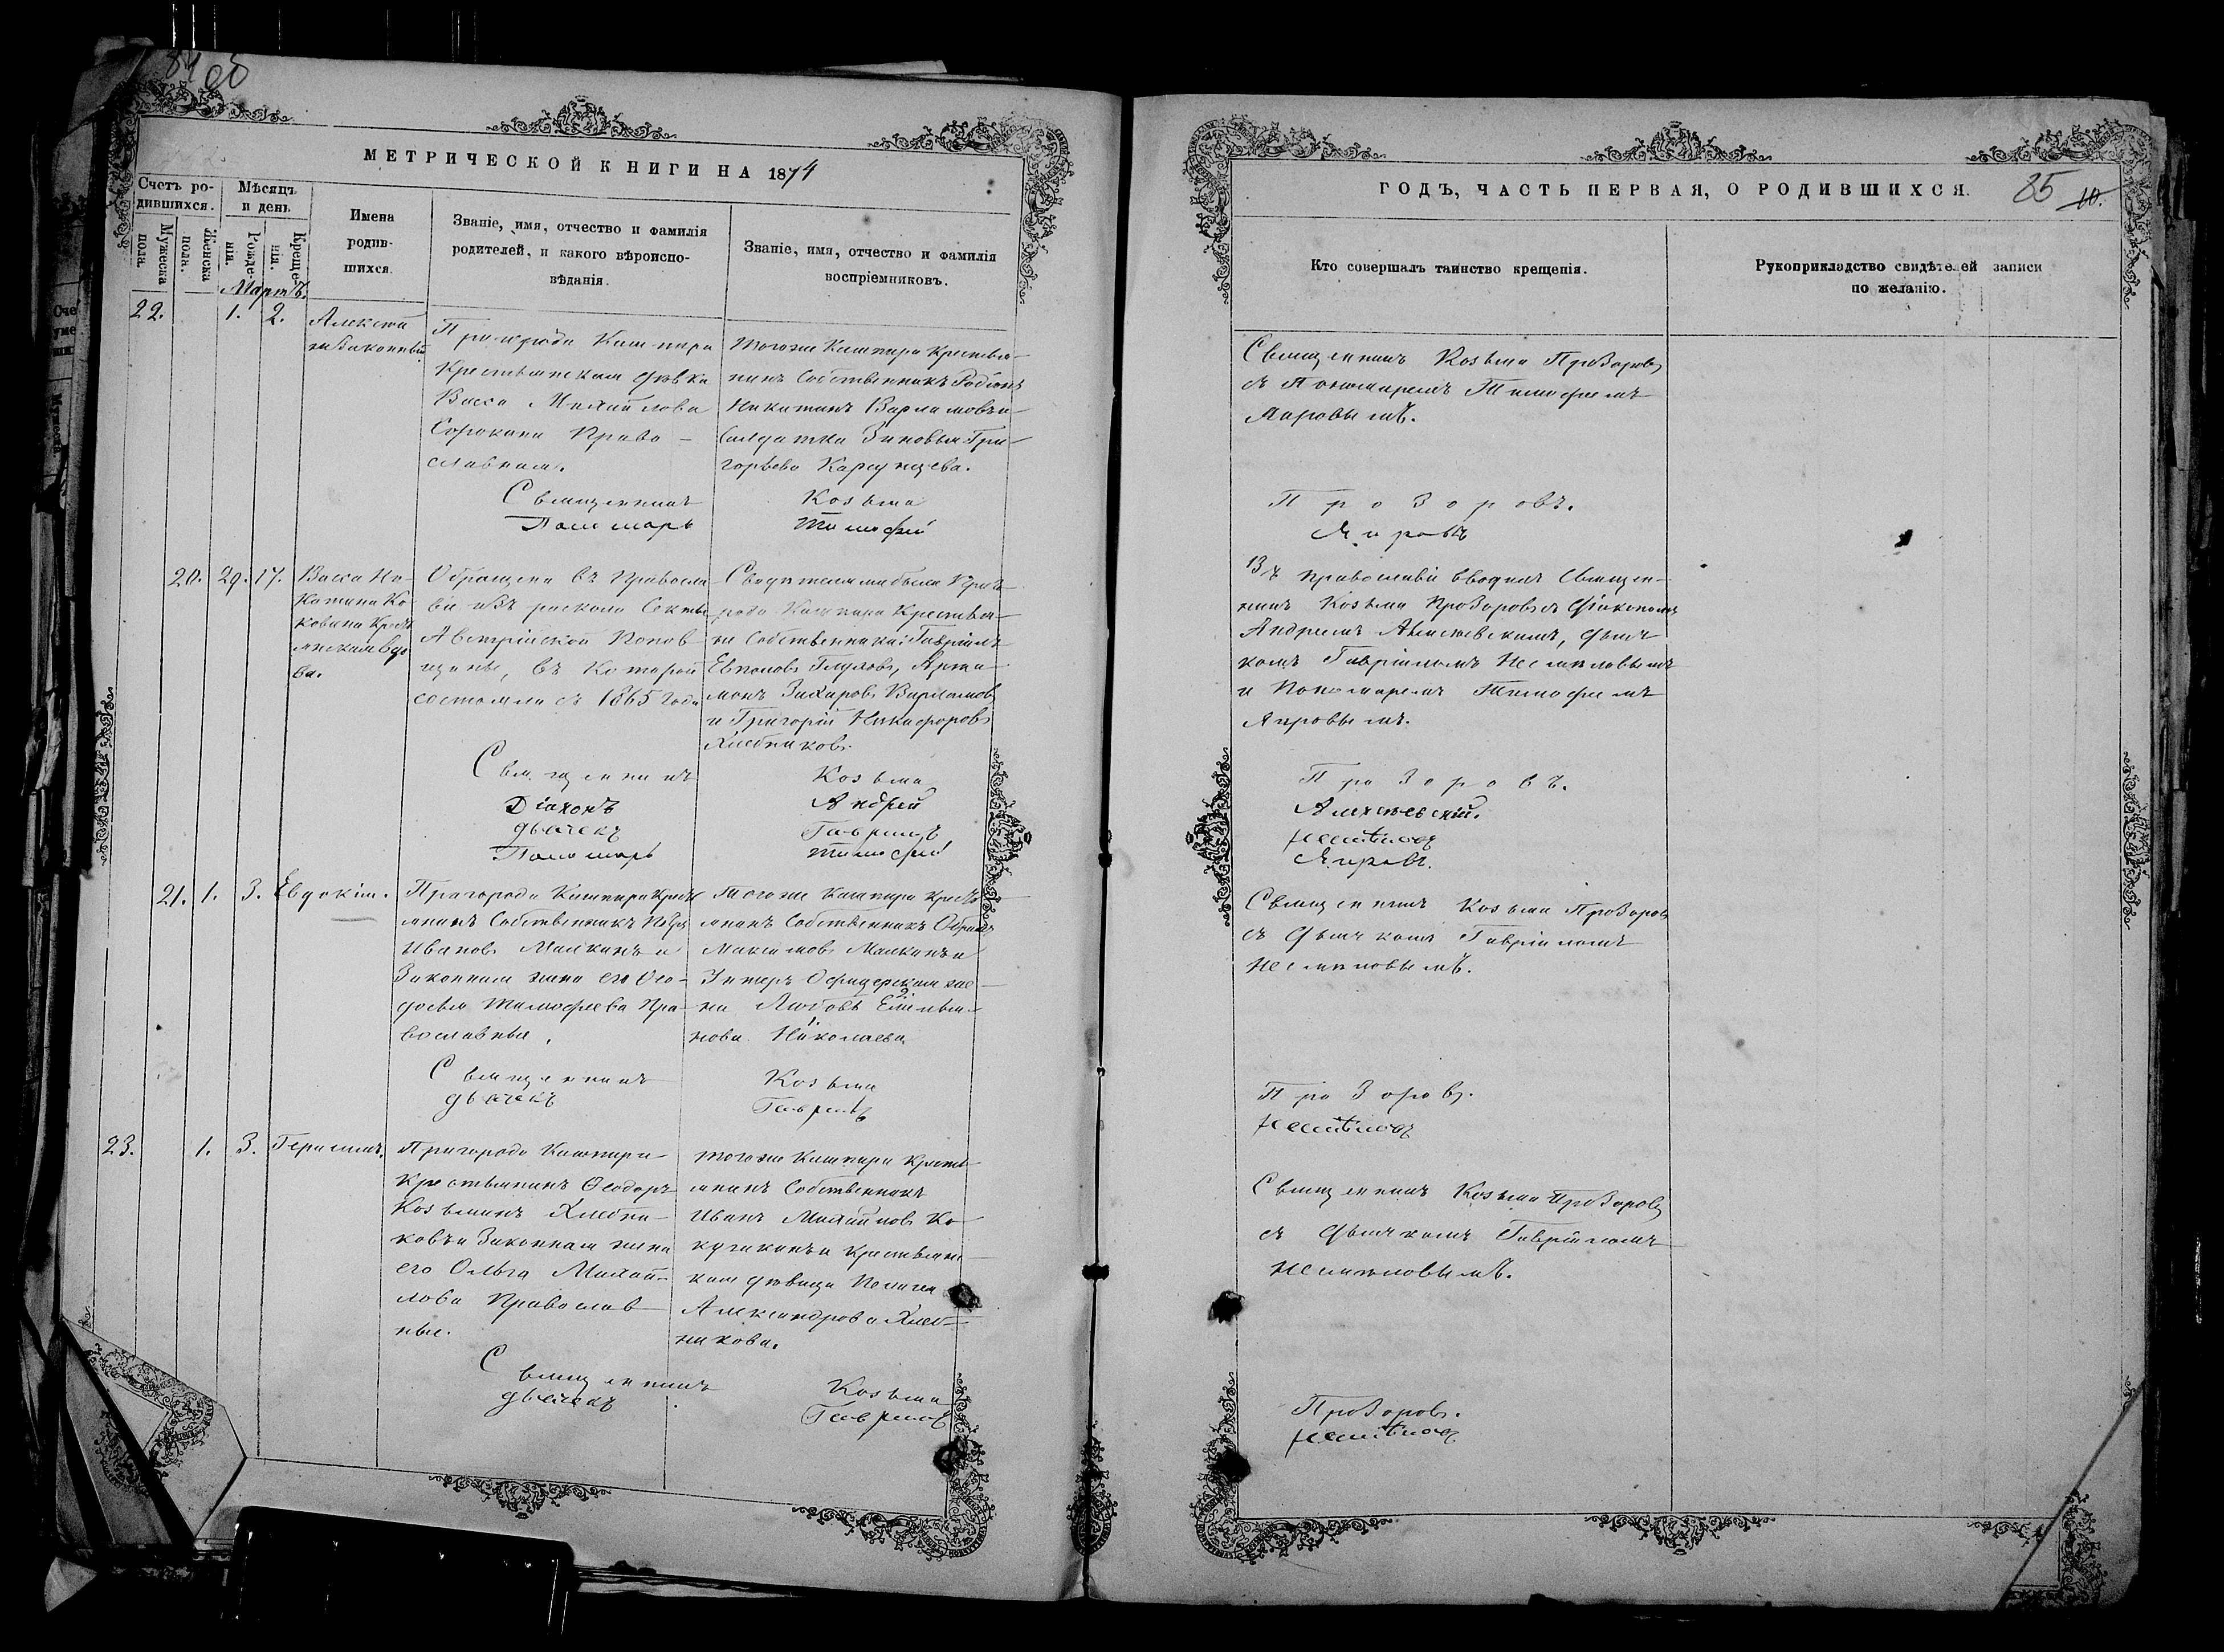 МЕТРИЧЕСКОЙ КНИГИ НА 1874
Счетъ ро-
дившихся.
Мужеска
пола.
Женска
пола.
Мѣсяцъ
и день
Рожде-
нія.
Креще-
нія.
Имена
родив-
шихся.
Званіе, имя, отчество и фамилія
родителей, и какого вѣроиспо-
вѣданія.
Званіе, имя, отчество и фамилія
воспріемниковъ.
Мартъ.
22. 1. 2.
Алексѣй
незаконный
Пригорода Кашпира
Крестьянская дѣвка
Васса Михайлова
Сорокина Право-
славная.
тогоже Кашпира Крестья-
нинъ Собственникъ Родіонъ
Никитинъ Варламовъ и
Солдатка Зиновья Гри-
горьева Карпунцева.
Священникъ Козьма
Пономарь Тимофей
20. 29. 17.
Васса Ни-
китина Ко-
Обращена въ Правосла-
віе изъ раскола Секты
Австрійской Попов-
щины, въ Которой
состояла съ 1865 года
Свидѣтелями были При-
рода Кашпира Крестья-
не Собственники: Гавріилъ
Глуховъ, Арта-
монъ Захаровъ Варламовъ
и Григорій Никифоровъ
Хлебниковъ.
Священникъ Козьма
Діаконъ Андрей
дьячекъ Гавріилъ
Пономарь Тимофей
21. 1. 3. Евдокія.
Пригорода Кашпира Кресть
янинъ Собственникъ Петръ
Ивановъ Малкинъ и
Законная жена его Ѳео-
досья Тимофеева Пра-
вославныя.
тогоже Кашпира Кресть
янинъ Собственникъ
Максимовъ Малкинъ и
Унтеръ Офицерская же-
на Любовь Емелья-
нова Николаева
Священникъ Козьма
дьячекъ Гавріилъ
23. 1. 3. Герасимъ.
Пригорода Кашпира
Крестьянинъ Ѳеодоръ
Козьминъ Хлебни-
ковъ и Законная жена
его Ольга Михай-
лова Православ-
ные.
тогоже Кашпира Кресть-
янинъ Собственникъ
Иванъ Михайловъ Ко-
Крестьянс-
кая дѣвица Пелагея
Александрова Хлеб-
никова.
Священникъ Козьма
дьячекъ Гавріилъ
ГОДЪ, ЧАСТЬ ПЕРВАЯ, О РОДИВШИХСЯ.
85 10.
Кто совершалъ таинство крещенія.
Рукоприкладство свидѣтелей записи
по желанію.
Священникъ Козьма Прозоровъ
съ Пономаремъ Тимофеемъ
Яировымъ.
Прозоровъ.
Яировъ
Въ православіе вводилъ Священ-
никъ Козьма Прозоровъ съ Діакономъ
Андреемъ Алексѣевскимъ, дьяч-
комъ Гавріиломъ Несмѣловымъ
и Пономаремъ Тимофеемъ
Яировымъ.
Прозоровъ.
Алексѣевскій.
Несмѣловъ
Яировъ.
Священникъ Козьма Прозоровъ
съ Дьячкомъ Гавріиломъ
Несмѣловымъ.
Прозоровъ.
Несмѣловъ
Священникъ Козьма Прозоровъ
съ Дьячкомъ Гавріиломъ
Несмѣловымъ.
Прозоровъ.
Несмѣловъ